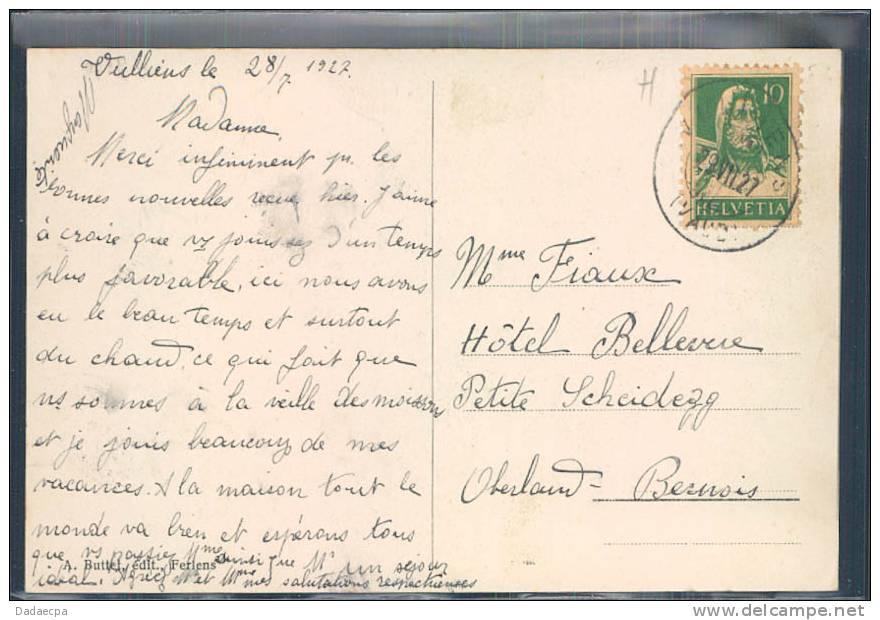 Vulliens le 28/7 1927.
Madame,
Merci infiniment pr. les
bonnes nouvelles reçues hier. J'aime
à croire que vs jouissez d'un temps
plus favorable, ici nous avons
eu le beau temps et surtout
du chaud, ce qui fait que
ns sommes à la veille des moissons
et je jouis beaucoup de mes
vacances. A la maison tout le
monde va bien et espérons tous
que vs passiez Mme ainsi que Mr un séjour
idéal. Agréez Mr et Mme mes salutations respectueuses
Marguerite
A. Buttet, édit., Ferlens
H
10
HELVETIA
29.VII.27
(VAUD)
Mme Fiaux
Hôtel Bellevue
Petite Scheidegg
Oberland-Bernois
Dadaecpa